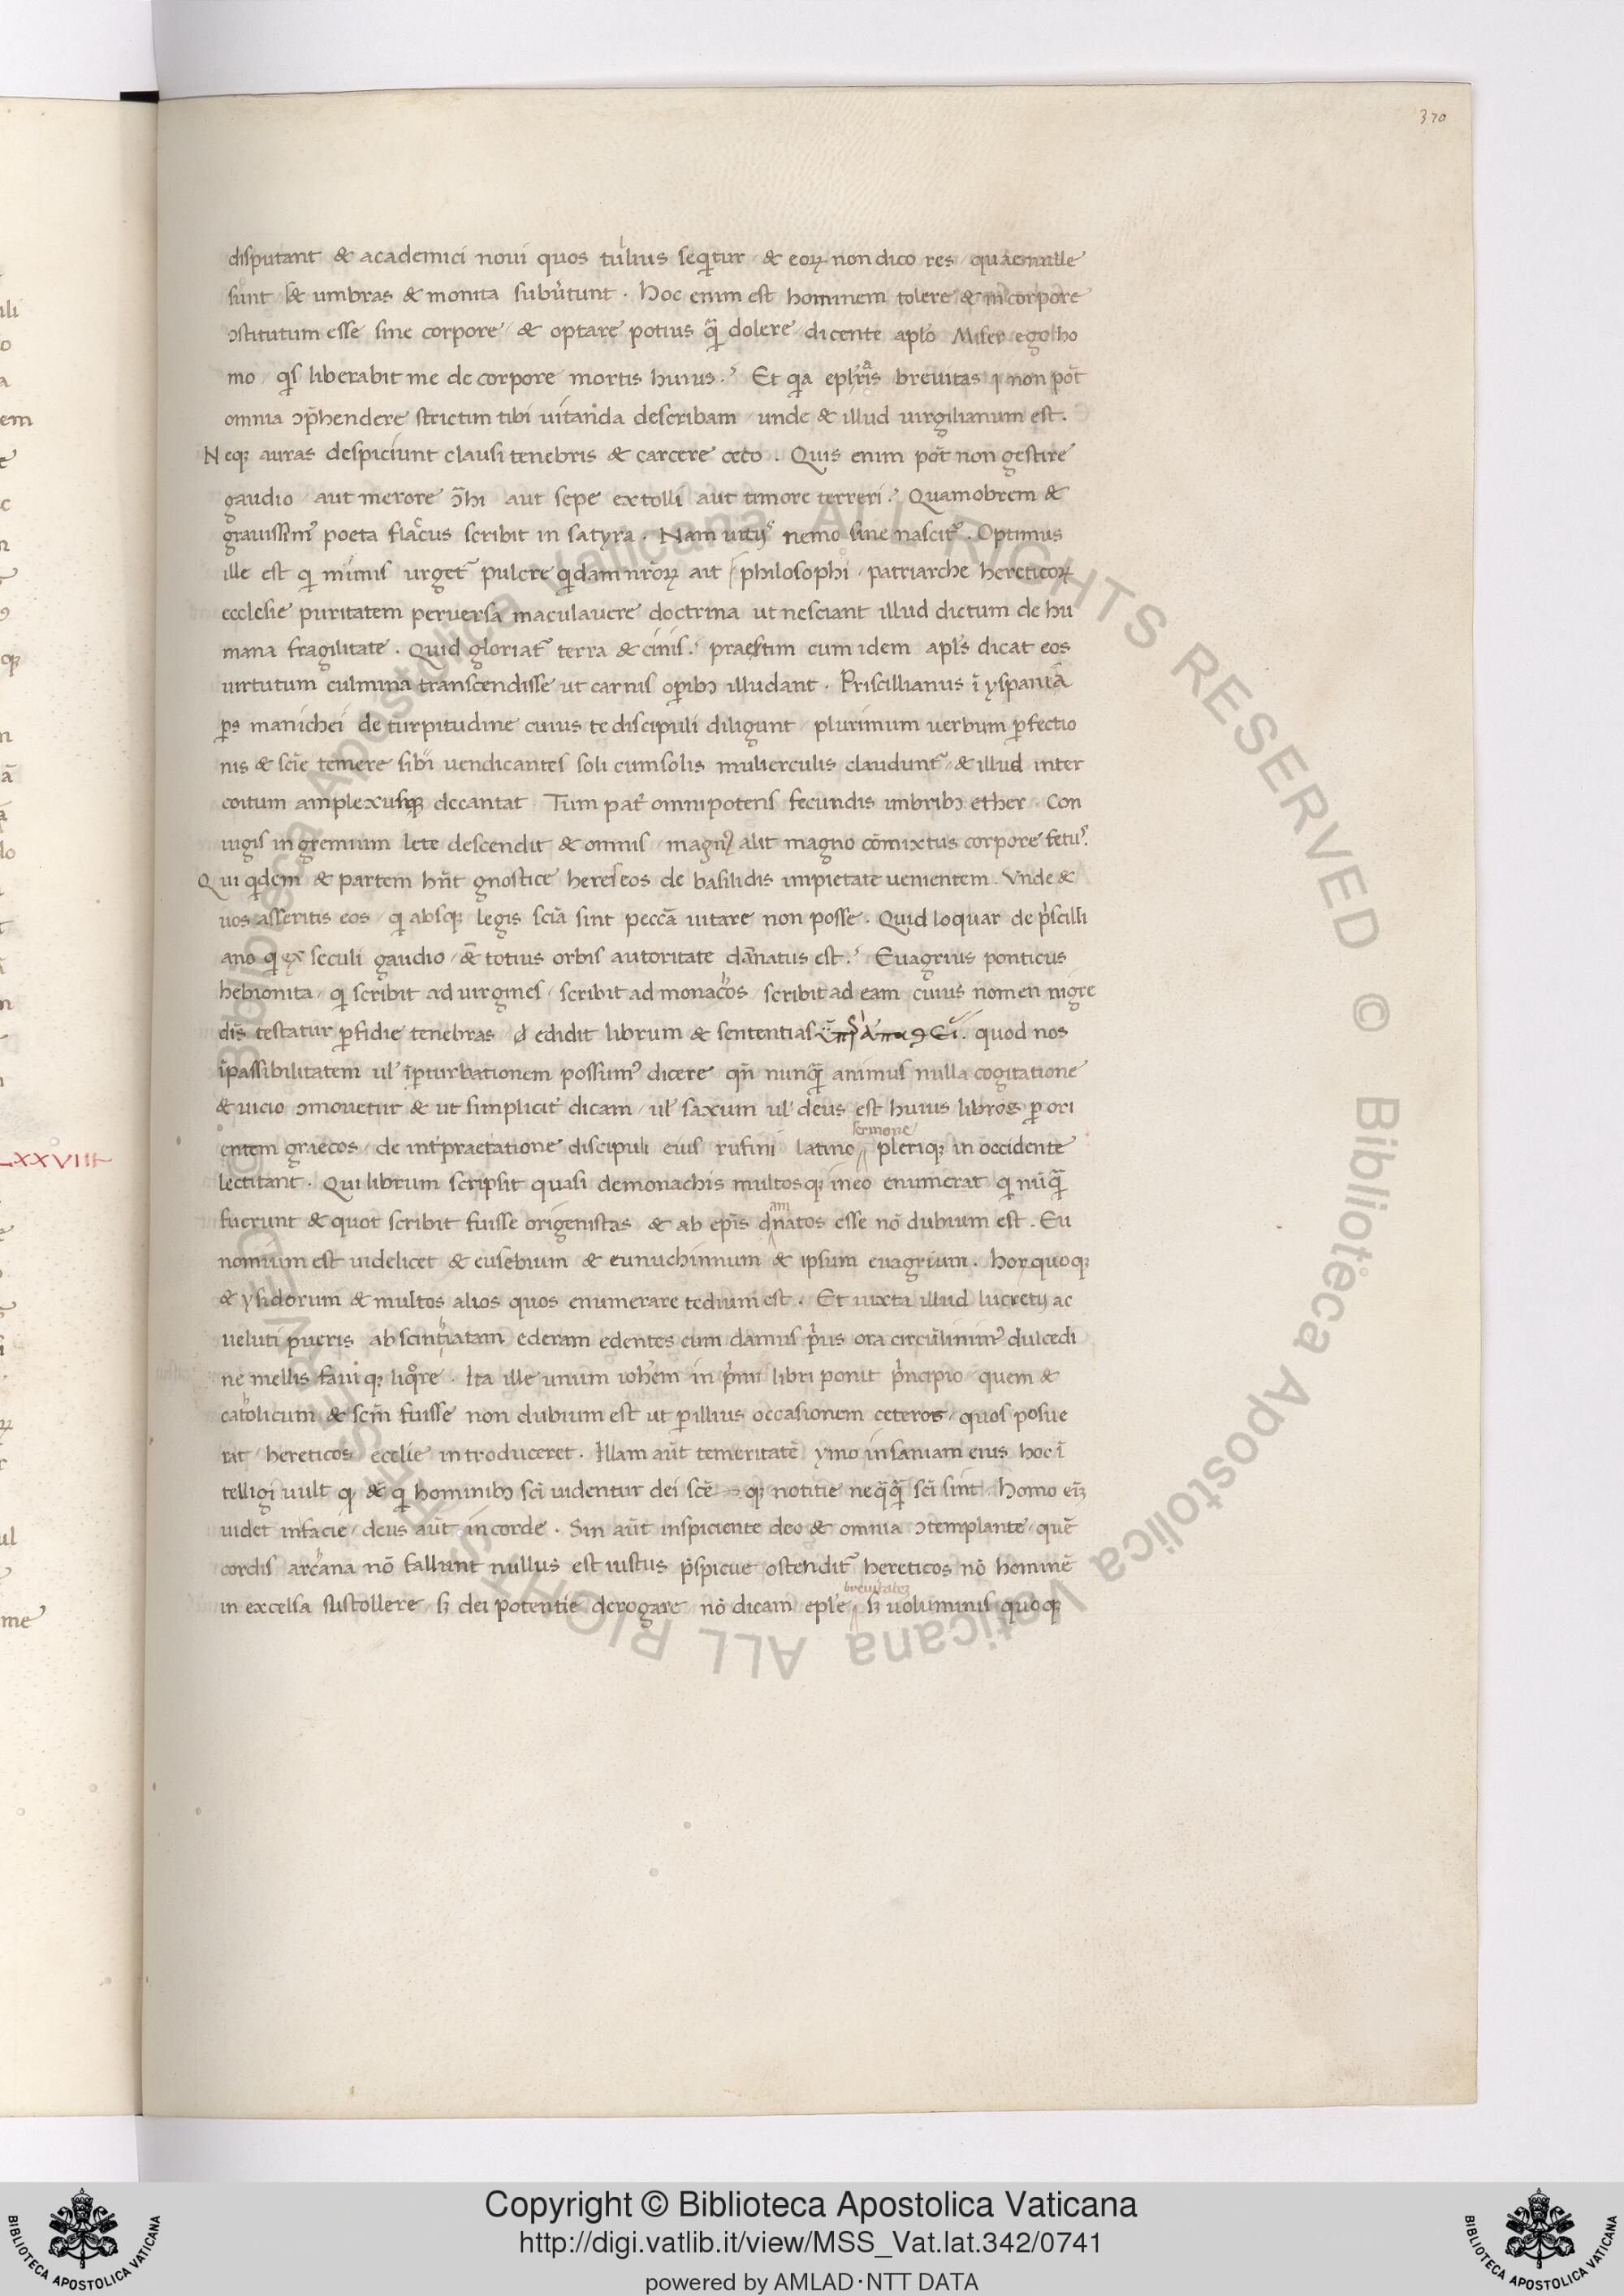 370
disputant & academici noui quos tullius seqitur / & eoꝝ non dico res / quae nulle
sunt / sꝫ umbras & monita subu̾tunt . Hoc enim est hominem tolere & in corpore
ꝯstitutum esse sine corpore / & optare potius qͣ̄ dolere / dicente aplo Miser ego ho
mo / qis liberabit me de corpore mortis huius .ˀ Et qia eplr̄is breuitas non pōt
omnia ꝯp̄hendere strictim tibi uitanda describam / unde & illud uirgilianum est .
Neqꝫ auras despiciunt clausi tenebris & carcere ceco . Quis enim pōt non gestire
gaudio / aut merore ꝯ̄hi aut sepe extolli aut timore terreri .ˀ Quamobrem &
grauissimꝰ poeta flaccus scribit in satyra . Nam uitijs nemo sine nascit᷑ . Optimus
ille est qi mimis urget᷑ pulcre qidam nr̄oꝝ ait / philosophi / patriarche hereticoꝝ
ecclesie puritatem peruersa maculauere doctrina ut nesciant illud dictum de hu
mana fragilitate . Quid gloriat᷑ terra & cinis .ˀ praesertim cum idem apls̄ dicat eos
uirtutum culmina transcendisse ut carnis oꝑibꝫ illudant . Priscillianus ī yspania
ꝑs manichei de turpitudine cuius te discipuli diligunt / plurimum uerbum ꝑfectio
nis & scīe temere sibi uendicantes soli cum solis mulierculis claudunt᷑ / & illud inter
coitum amplexusqꝫ decantat . Tum pat̾ omnipotens fecundis imbribꝫ ether . Con
iugis in gremium lete descendit & omnis / magnꝰ alit magno cōmixtus corpore fetuꝰ.
Qui qidem & partem hn̄t gnostice hereseos de basilidis impietate uenientem . Vnde &
uos asseritis eos / qi absqꝫ legis scīa sint peccā uitare non posse . Quid loquar de pͥscilli
ano qi ex seculi gaudio / & totius orbis autoritate dānatus est .ˀ Euagrius ponticus
hebionita / qi scribit ad uirgines / scribit ad monachos / scribit ad eam cuius nomen nigre
dis̄ testatur ꝑfidie tenebras / edidit librum & sententias quod nos
īpassibilitatem ul̾ īꝑturbationem possumꝰ dicere qn̄ nunqͣ̄ animus nulla cogitatione
& uicio ꝯmouetur & ut simplicit̾ dicam / ul̾ saxum ul̾ deus est huius libros ꝑ ori
entem graecos / de int̾praetatione discipuli eius rufini latino sermone pleriqꝫ in occidente
lectitant . Qui librum scripsit quasi de monachis multosqꝫ in eo enumerat qi nūqͣ̄
fuerunt & quot scribit fuisse origenistas & ab ep̄is damnatos esse nō dubium est . Eu
nomium est uidelicet & eusebium & eunuchinnum & ipsum euagrium . hoꝝ quoqꝫ
& ysidorum & multos alios quos enumerare tedium est . Et iuxta illud lucretij ac
ueluti pueris absinthiatam ederam edentes cum damus pͥus ora circūlinimꝰ dulcedi
ne mellis fauiqꝫ liqore . Ita ille unum ioh̄em in pͥmi libri ponit pͥncipio / quem &
catholicum & scm̄ fuisse non dubium est ut ꝑ illius occasionem ceteros / quos posue
rat / hereticos / ecclie introduceret . Illam aut̄ temeritatē ymo insaniam eius hoc ī
telligi uult qꝫ & qi hominibꝫ sci uidentur dei sce̅ qꝫ notitie neqͣqͣ̄ sci sint / homo eī
uidet in facie / deus aut̄ in corde . Sin aut̄ inspiciente deo & omnia ꝯtemplante / quē
cordis archana nō fallunt nullus est iustus ꝑspicue ostendit᷑ hereticos nō hominē
in excelsa sustollere / sꝫ dei potentie derogare / nō dicam ep̄le breuitatez sꝫ uoluminis quoqꝫ
LXXVIII
Copyright © Biblioteca Apostolica Vaticana
http://digi.vatlib.it/view/MSS_Vat.lat.342/0741
powered by AMLAD·NTT DATA
BIBLIOTECA APOSTOLICA VATICANA
BIBLIOTECA APOSTOLICA VATICANA